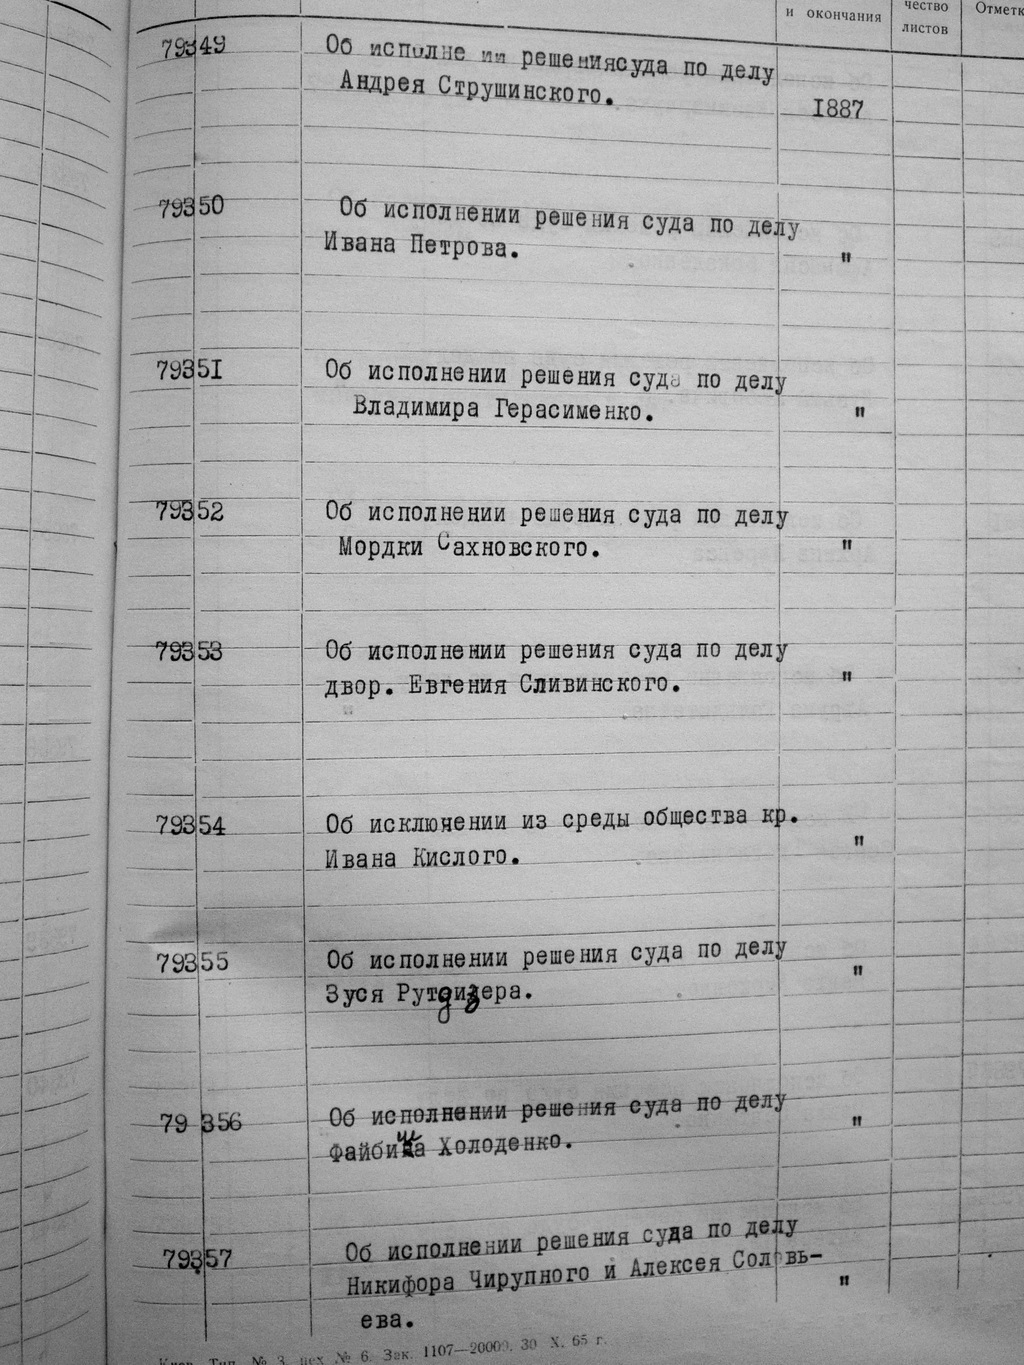 и окончания
чество
листов
Отметк
79349
Об исполне ии решениясуда по делу
Андрея Струшинского.
1887
79350
Об исполнении решения суда по делу
Ивана Петрова.
"
79351
Об исполнении решения суда по делу
Владимира Герасименко.
"
79352
Об исполнении решения суда по делу
Мордки Сахновского.
"
79353
Об исполнении решения суда по делу
двор. Евгения Сливинского.
"
79354
Об исключении из среды общества кр.
Ивана Кислого.
"
79355
Об исполнении решения суда по делу
Зуся Рутдизера.
"
79 356
Об исполнении решения суда по делу
Файбиша Холоденко.
"
79357
Об исполнении решения суда по делу
Никифора Чирупного и Алексея Соловь-
ева.
"
Тип. № 3, цех № 6. Зак. 1107—20000. 30 X. 65 г.